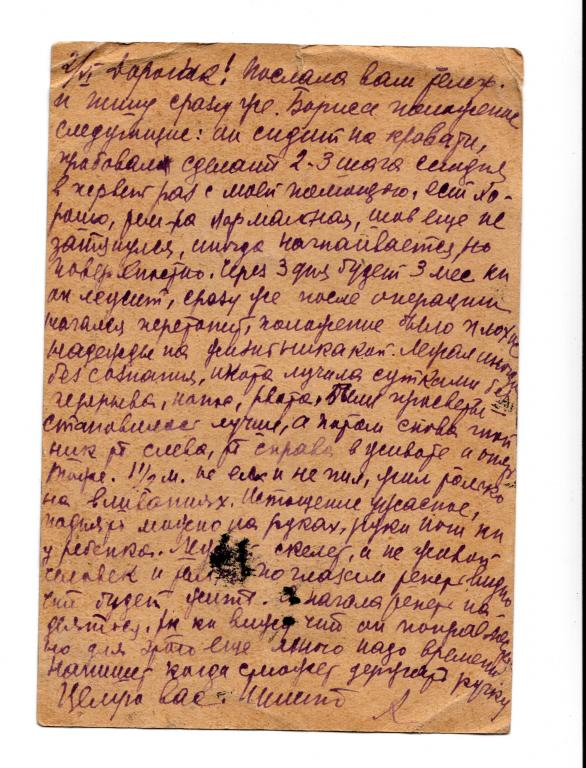 2/VI Дорогие! Послала вам телегр.
и пишу сразу же. Бориса положение
следующие: он сидит на кровати,
пробовал сделать 2-3 шага сегодня
в первый раз с моей помощью, ест хо-
рошо, тем-ра нормальная, шов еще не
затянулся, иногда нагнаивается, но
поверхностно. Через 3 дня будет 3 мес как
он лежит, сразу же после операции
начался перетонит, положение было плохое
надежды на жизнь никакой. Лежал иногда
без сознания, икота мучила сутками без
перерыва, понос, рвота, были просветы
становилось лучше, а потом снова гной
ник то слева, то справа в животе и опять
тоже. 1 1/2 м. не ел и не пил, жил только
на вливаниях. Истощение ужасное,
поднять можно на руках, руки ноги как
у ребенка. скелет, а не живой
человек и только по глазам теперь видно
что будет жить. Я начала теперь на-
деяться,
но для этого еще много надо времени
напишет когда сможет держать ручку
Целую вас. Пишите